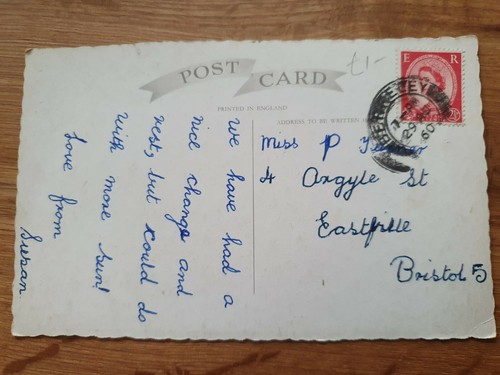 POST CARD
£1-
PRINTED IN ENGLAND
ADDRESS TO BE WRITTEN
E R
2½
BERKELEY
29
60
We have had a
nice change and
rest, but could do
with more sun!
Love from
Susan
Miss P
4 Argyle St
Eastville
Bristol 5